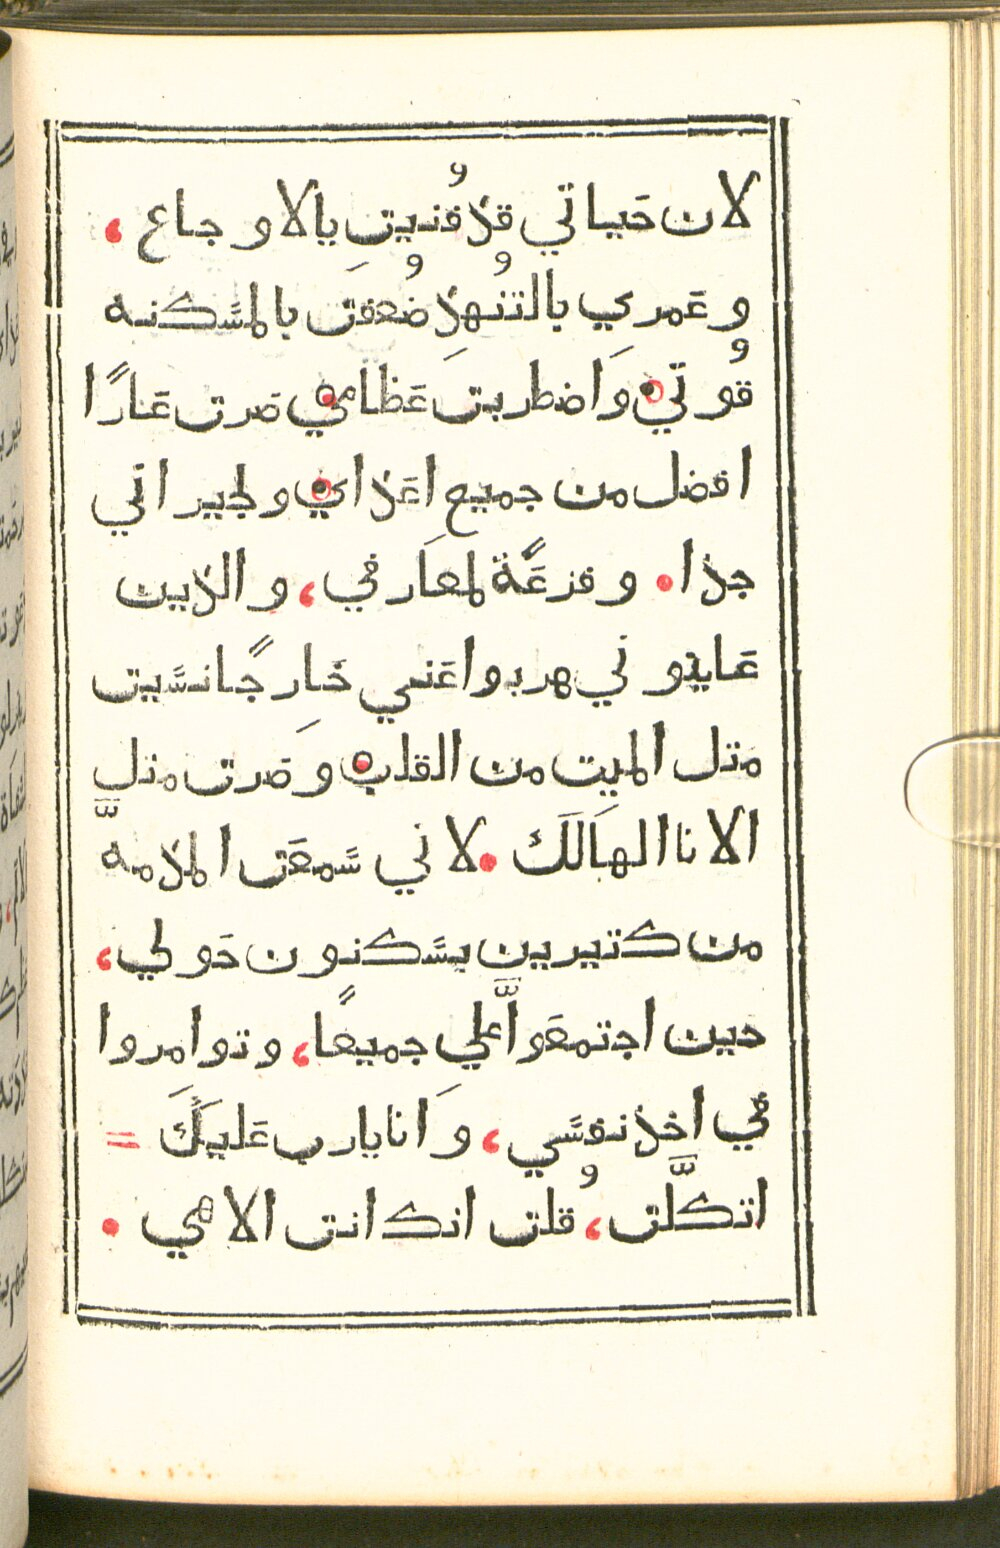 لان حَياتي قد فُنيت بالاوجاع ،
وعَمري بالتنُهد ضُعفَت بالمسَكنه
قوُتي • وَاضطربتَ عَظامي • صَرت عَارًا
افضل من جميع اعَداي • ولجيراني
جدا • وفزعَةً لمعَارفي ، والدين
عَاينوني هربوا عَني خَارجًا نسَيت
مَتل الميت من القلب • وصَرت متل
الانا الهَالَك • لاني سَمعَت المدمَّه
من كتيرين يسَكنون حَولي ،
حين اجتمعَوا عَليَّ جميعًا ، وتوامروا
في اخد نفسَي ، وَانا يارب عَليكَ =
اتكَّلت ، قُلت انك انت الاهي •